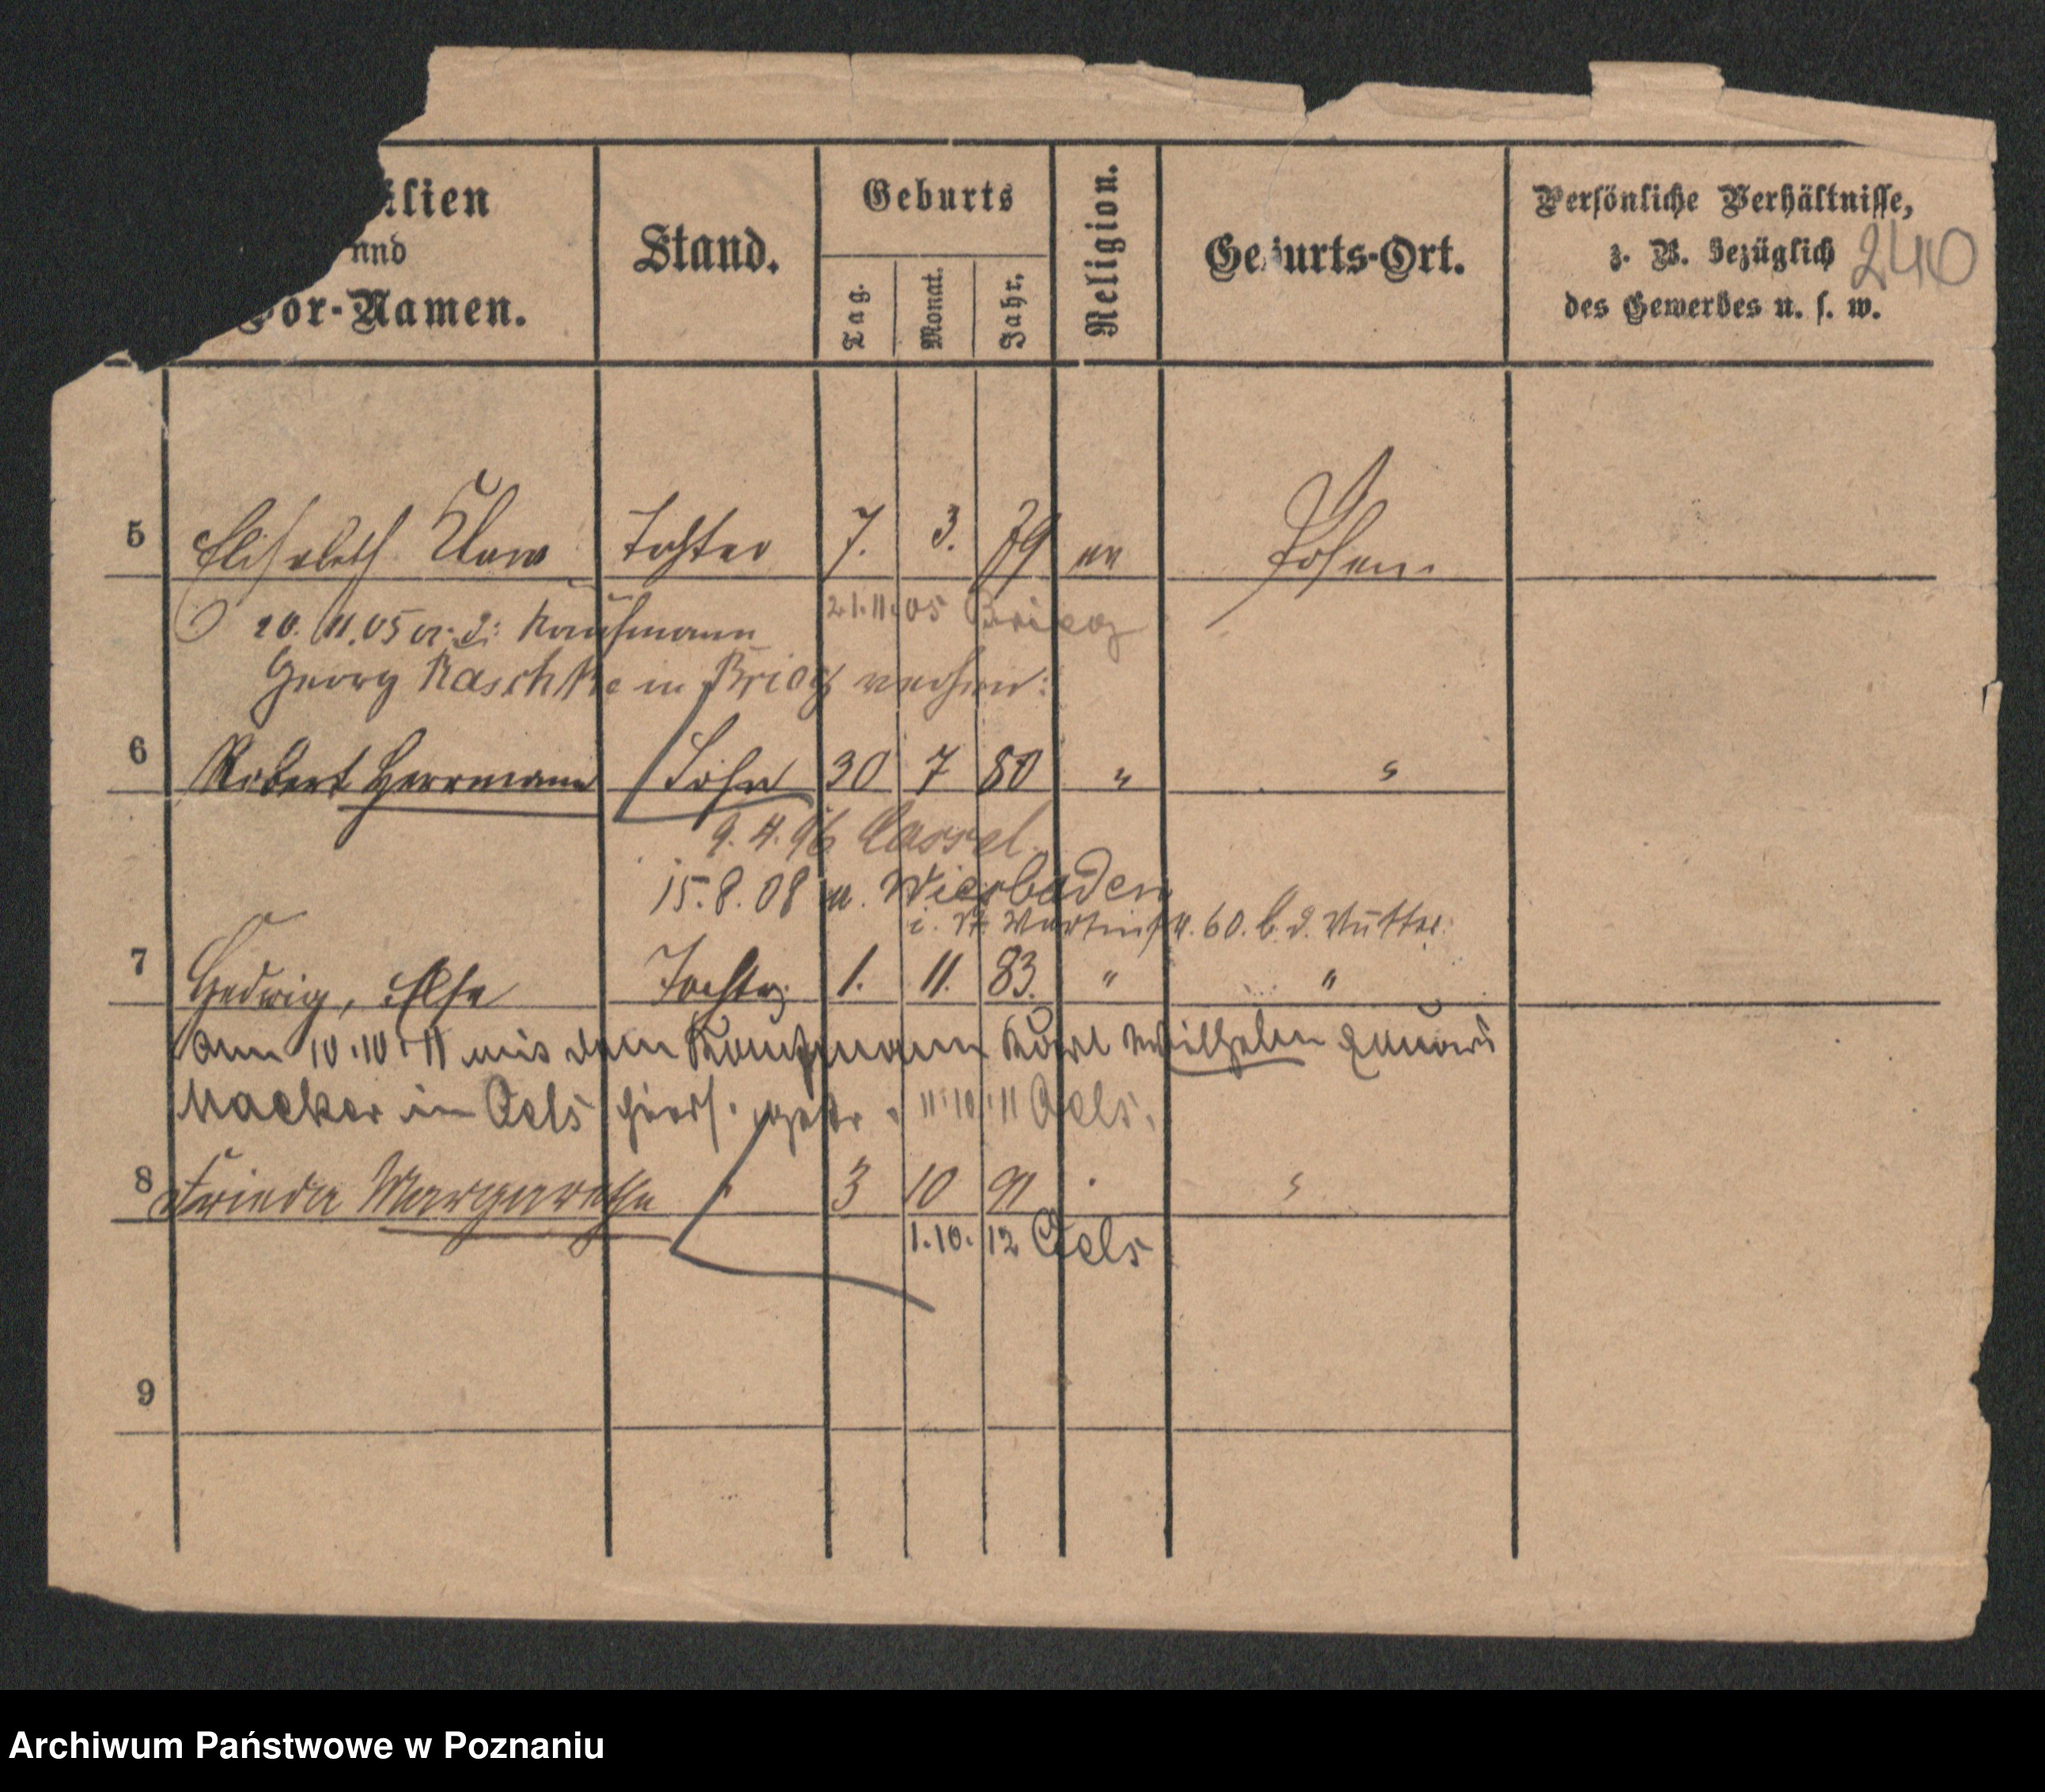 ilien
und
or-Namen.
Stand.
Geburts
Tag.
Monat.
Jahr.
Religion.
Geburts-Ort.
Persönliche Verhältnisse,
z. B. bezüglich
des Gewerbes u. s. w.
240
5 Elisabeth Clara Tochter 7. 3. 79 Posen.
20. 11. 05 a. d. Kaufmann 21.11.05 Brieg
Georg Raschke in Brieg
6 Robert Herrmann Sohn 30 7 80 " "
9. 4. 96 Cassel.
15. 8. 08 v. Wiesbaden
i. St. Martinstr. 60. b. d. Mutter.
7 Hedwig, Else Tochter 1. 11. 83. " "
Am 10.10.11 mit dem Kaufmann Karl Wilhelm
Macker in Oels hiers. 11.10.11 Oels.
8 Frieda Margarethe " 3 10 91 " "
1.10.12 Oels
9
Archiwum Państwowe w Poznaniu